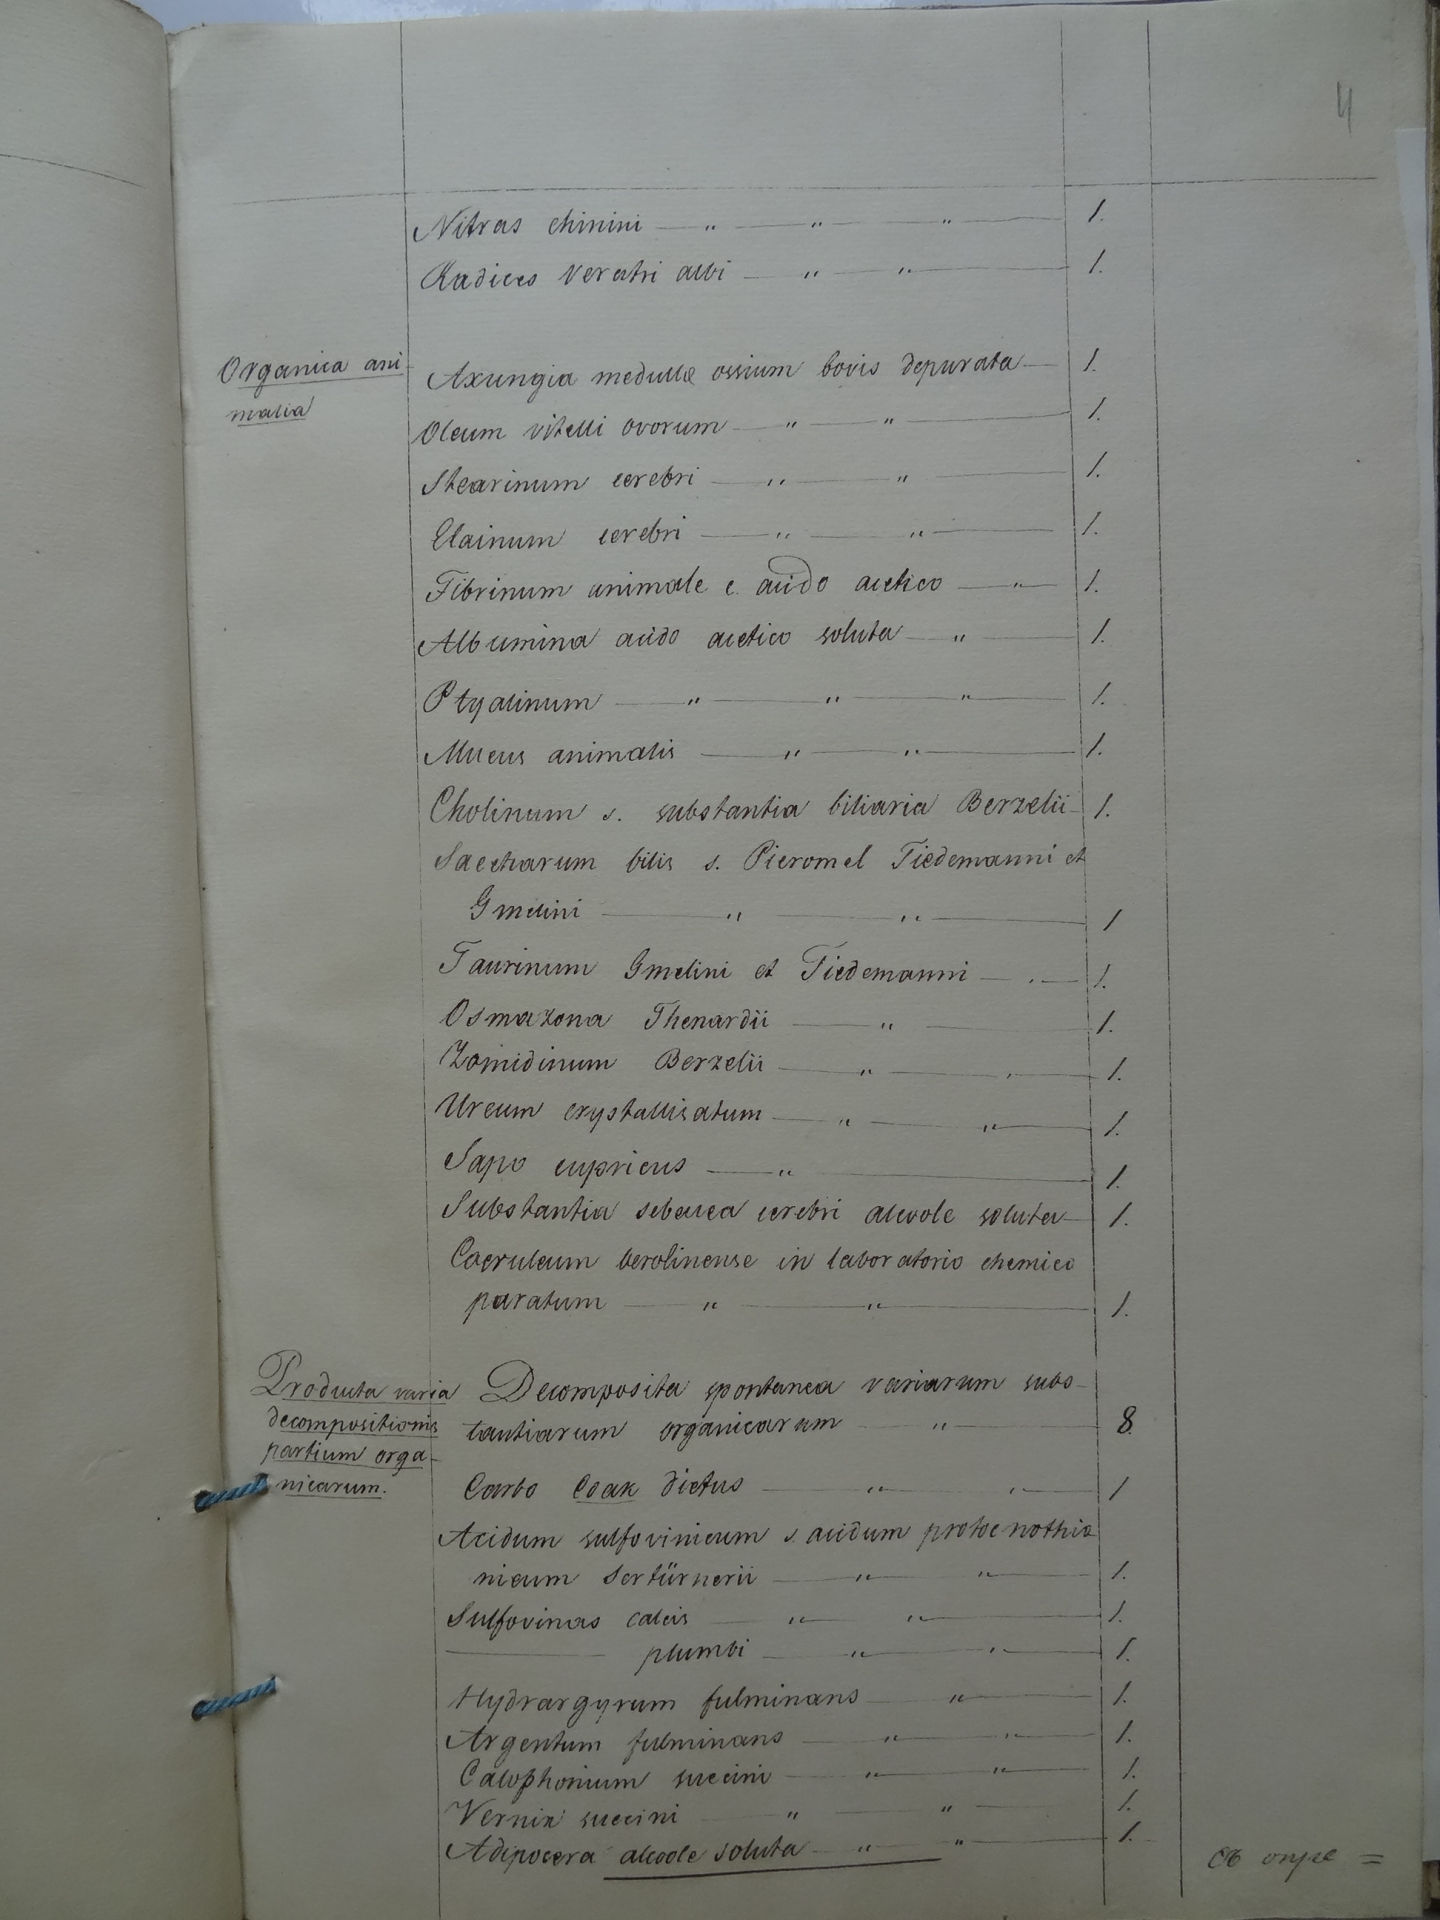 4
Nitras chinini — „ — „ — „ — 1.
Radices Veratri albi — „ — „ — 1.
Organica ani-
malia
Axungia medullæ ossium bovis depurata — 1.
Oleum vitelli ovorum — „ — „ — 1.
Stearinum cerebri — „ — „ — 1.
Elainum cerebri — „ — „ — 1.
Fibrinum animale c. acido acetico — „ — 1.
Albumina acido acetico soluta — „ — 1.
Ptyalinum — „ — „ — „ — 1.
Mucus animalis — „ — „ — 1.
Cholinum s. substantia biliaria Berzelii — 1.
Saccharum bilis s. Picromel Tiedemanni et
Gmelini — „ — „ — 1
Taurinum Gmelini et Tiedemanni — „ — 1.
Osmazona Thenardii — „ — 1.
Zomidinum Berzelii — „ — „ — 1.
Ureum crystallisatum — „ — „ — 1.
Sapo cupricus — „ — 1.
Substantia sebacea cerebri alcoole soluta — 1.
Coeruleum berolinense in laboratorio chemico
paratum — „ — „ — 1.
Producta varia
decompositionis
partium orga-
nicarum.
Decomposita spontanea variarum subs-
tantiarum organicarum „ — 8.
Carbo Coak dictus — „ — „ — 1
Acidum sulfovinicum s. acidum protoenothio
nicum Sertürnerii — „ — „ — 1.
Sulfovinas calcis — „ — „ — 1.
— plumbi — „ — „ — 1.
Hydrargyrum fulminans — „ — 1.
Argentum fulminans — „ — „ — 1.
Calophonium succini — „ — „ — 1.
Vernix succini — „ — „ — 1.
Adipocera alcoole soluta — „ — „ — 1.